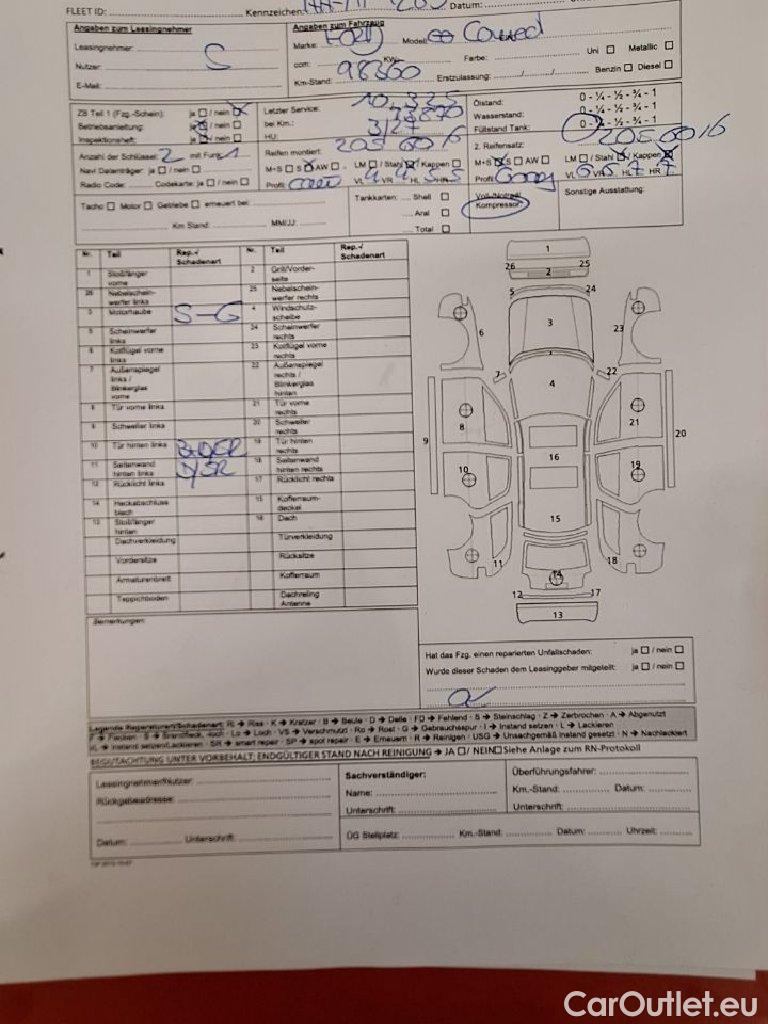 FLEET ID: Kennzeichen: Datum:
Angaben zum Leasingnehmer
Leasingnehmer:
Nutzer:
E-Mail:
Angaben zum Fahrzeug
Marke: FORD Modell: Connect
ccm: KW: Farbe: Uni Metallic
Km-Stand: 98360 Erstzulassung: Benzin Diesel
ZB Teil 1 (Fzg.-Schein): ja / nein
Betriebsanleitung: ja / nein
Inspektionsheft: ja / nein
Letzter Service:
bei Km.:
HU: 3/27
Ölstand: 0 - ¼ - ½ - ¾ - 1
Wasserstand: 0 - ¼ - ½ - ¾ - 1
Füllstand Tank: 0 - ¼ - ½ - ¾ - 1
Anzahl der Schlüssel: 2 mit Funk: 1
Navi Datenträger: ja / nein
Radio Code: Codekarte: ja / nein
Reifen montiert: 205 60 16
M+S S AW LM / Stahl / Kappen
Profil: VL 4 VR 4 HL 5 HR 5
2. Reifensatz: 205 60 16
M+S S AW LM / Stahl / Kappen
Profil: VL 6 VR 6 HL 7 HR 7
Tacho Motor Getriebe erneuert bei:
Km Stand: MM/JJ:
Tankkarten: Shell
Aral
Total
Voll-/Notrad:
Kompressor:
Sonstige Ausstattung:
Nr. Teil Rep.-/ Schadenart Nr. Teil Rep.-/ Schadenart
1 Stoßfänger vorne 2 Grill/Vorderseite
26 Nebelscheinwerfer links 25 Nebelscheinwerfer rechts
3 Motorhaube S-G 4 Windschutzscheibe
5 Scheinwerfer links 24 Scheinwerfer rechts
6 Kotflügel vorne links 23 Kotflügel vorne rechts
7 Außenspiegel links / Blinkerglas vorne 22 Außenspiegel rechts / Blinkerglas hinten
8 Tür vorne links 21 Tür vorne rechts
9 Schweller links 20 Schweller rechts
10 Tür hinten links 19 Tür hinten rechts
11 Seitenwand hinten links 18 Seitenwand hinten rechts
12 Rücklicht links 17 Rücklicht rechts
14 Heckabschlussblech 15 Kofferraumdeckel
13 Stoßfänger hinten 16 Dach
Dachverkleidung Türverkleidung
Vordersitze Rücksitze
Armaturenbrett Kofferraum
Teppichboden Dachreling Antenne
1
26 25
2
5 24
6 3 23
7 22
4
8 21
9 20
16
10 19
15
11 18
14
12 17
13
Bemerkungen:
Hat das Fzg. einen reparierten Unfallschaden: ja / nein
Wurde dieser Schaden dem Leasinggeber mitgeteilt: ja / nein
Legende Reparaturart/Schadenart: RI → Riss · K → Kratzer / B → Beule · D → Delle / FD → Fehlend · S → Steinschlag · Z → Zerbrochen · A → Abgenutzt
F → Flecken · Lo → Loch · VS → Verschmutzt · Ro → Rost · G → Gebrauchsspur · I → Instand setzen · L → Lackieren
IL → Instand setzen/Lackieren · SR → smart repair · SP → spot repair · E → Erneuern · R → Reinigen / USG → Unsachgemäß instand gesetzt · N → Nachlackiert
BEGUTACHTUNG UNTER VORBEHALT; ENDGÜLTIGER STAND NACH REINIGUNG → JA / NEIN Siehe Anlage zum RN-Protokoll
Leasingnehmer/Nutzer:
Rückgabeadresse:
Datum: Unterschrift:
Sachverständiger:
Name:
Unterschrift:
Überführungsfahrer:
Km.-Stand: Datum:
Unterschrift:
ÜG Stellplatz: Km.-Stand: Datum: Uhrzeit:
CarOutlet.eu